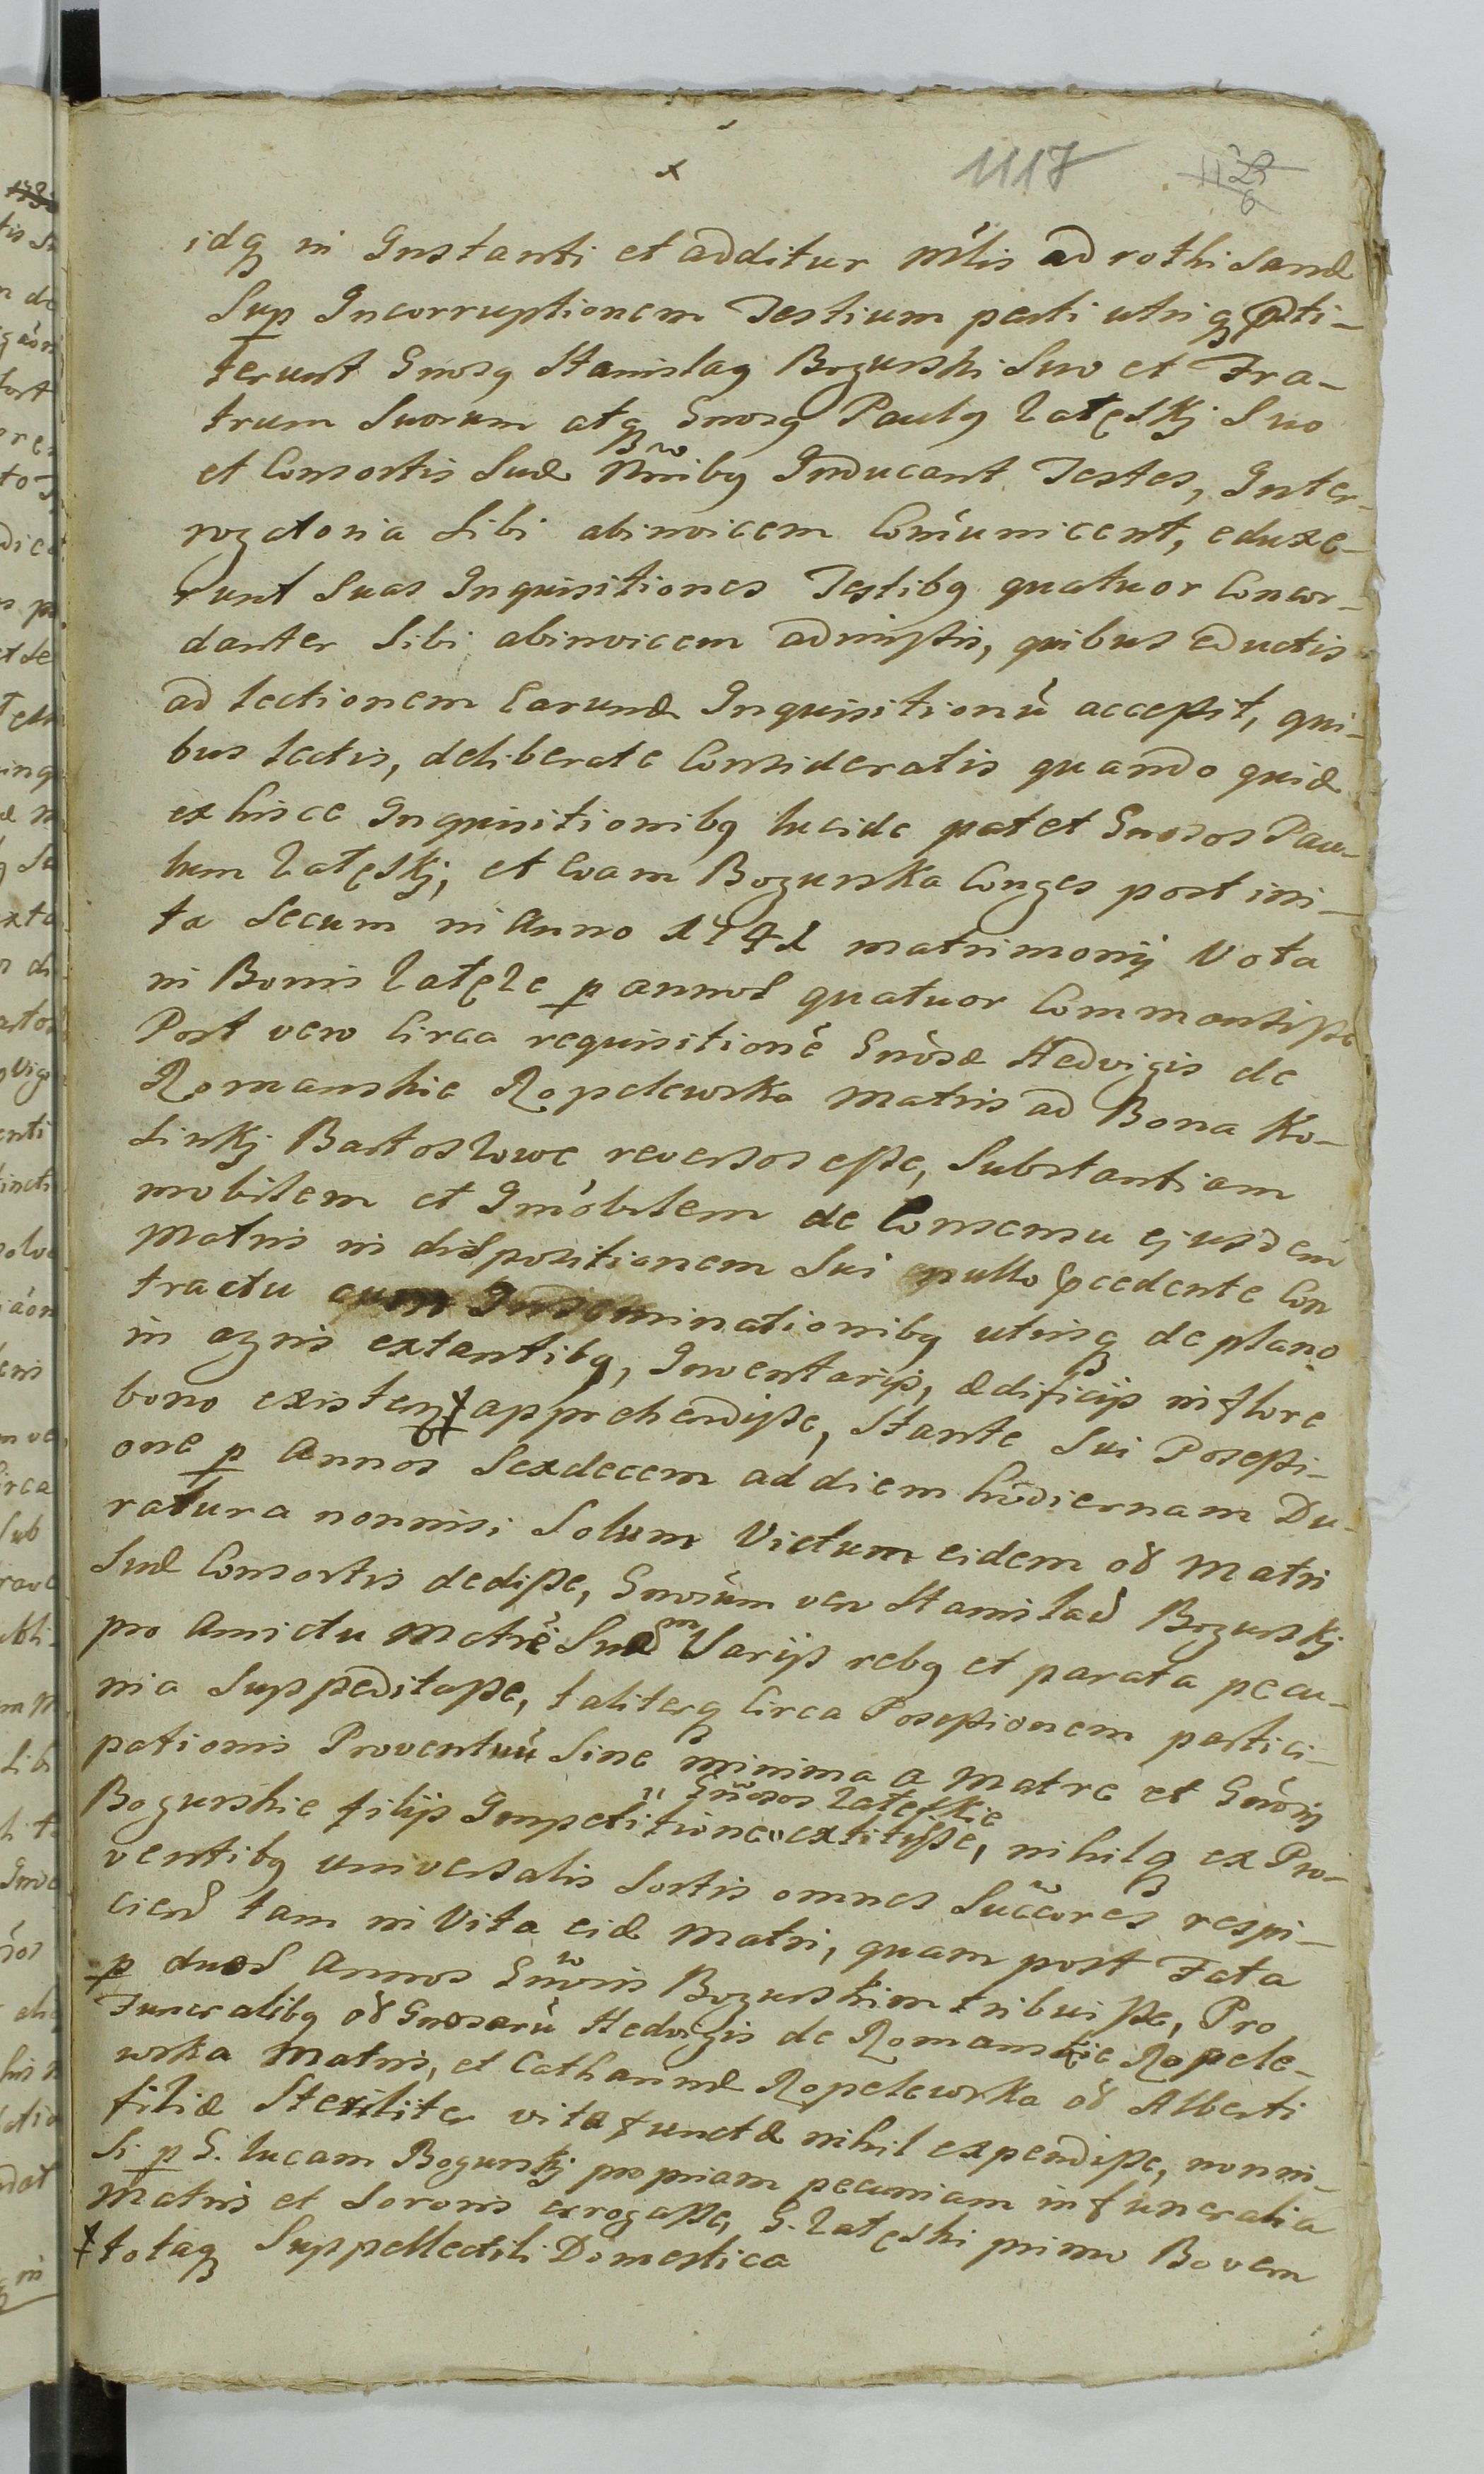 1117
idq in Instanti et additur Mlis ad rothisand
Sup Incorruptionem Testium parti utriq Pti-
terunt Gnosq Stanislaq Bogurski Suo et Fra-
trum Suorum atq Gnosq Paulq Łatęskj Suo
et Consortis Suæ Nnibq Inducant Testes, Inter-
rogatoria Sibi abinvicem Comunicent, eduxe-
runt Suas Inquisitiones Testibq quatuor Concor-
danter Sibi abinvicem admissis, quibus eductis
ad lectionem Earund Inquisitionù accessit, qui-
bus lectis, deliberate Consideratis quando quid
ex hisce Inquisitionibq lucide patet Gnosos Pau-
lum Łatęskj, et Evam Bogurska Conges post ini-
ta Secum in Anno 1741 matrimonij Vota
in Bonis Łatęże p annos quatuor Commansisse
Post vero Circa requisitionè Gnosæ Hedvigis de
Romanskie Ropelewska Matris ad Bona Ko-
sinkj Bartosłowe reversos esse, Substantiam
mobilem et Imobilem de Consensu ejusdem
Matris in dispositionem Sui nullo Pcedente Con
tractu cum Inseminationibq utrisq de plano
in agris extantibq, Inventarijs, ædificijs in flore
bono existen ⁜ apprehendisse, Stante Sui Possessi-
one p Annos Sexdecem ad diem hodiernam Du-
ratura nonnisi Solum Victum eidem oð Matri
Suæ Consortis dedisse, Gnosum vero Stanislaù Bogurskj
pro Amictu Matrè Suam Varijs rebq et parata pecu-
nia Suppeditasse, taliterq Circa Possessionem partici-
pationis Proventuù Sine minima a Matre et Gnosis
" Gnosos Łatęskie
Bogurskie filijs Impetitione " extitisse, nihilq ex Pro-
ventibq universalis Sortis omnes Succores respi-
ciend tam in Vita eid Matri, quam post Fata
p duos Annos Gnosis Bogurskim tribuisse, Pro
Funeralibq oð Gnosarù Hedvigis de Romanskie Ropele-
wska Matris, et Catharinæ Ropelewska oð Alberti
filiæ Steriliter vita functæ nihil expendisse, nonni-
si p G. Lucam Bogurskj propriam pecuniam in funeralia
Matris et Sororis errogasse, G. Łatęski primo Bovem
⁜ totaq Suppellectili Domestica